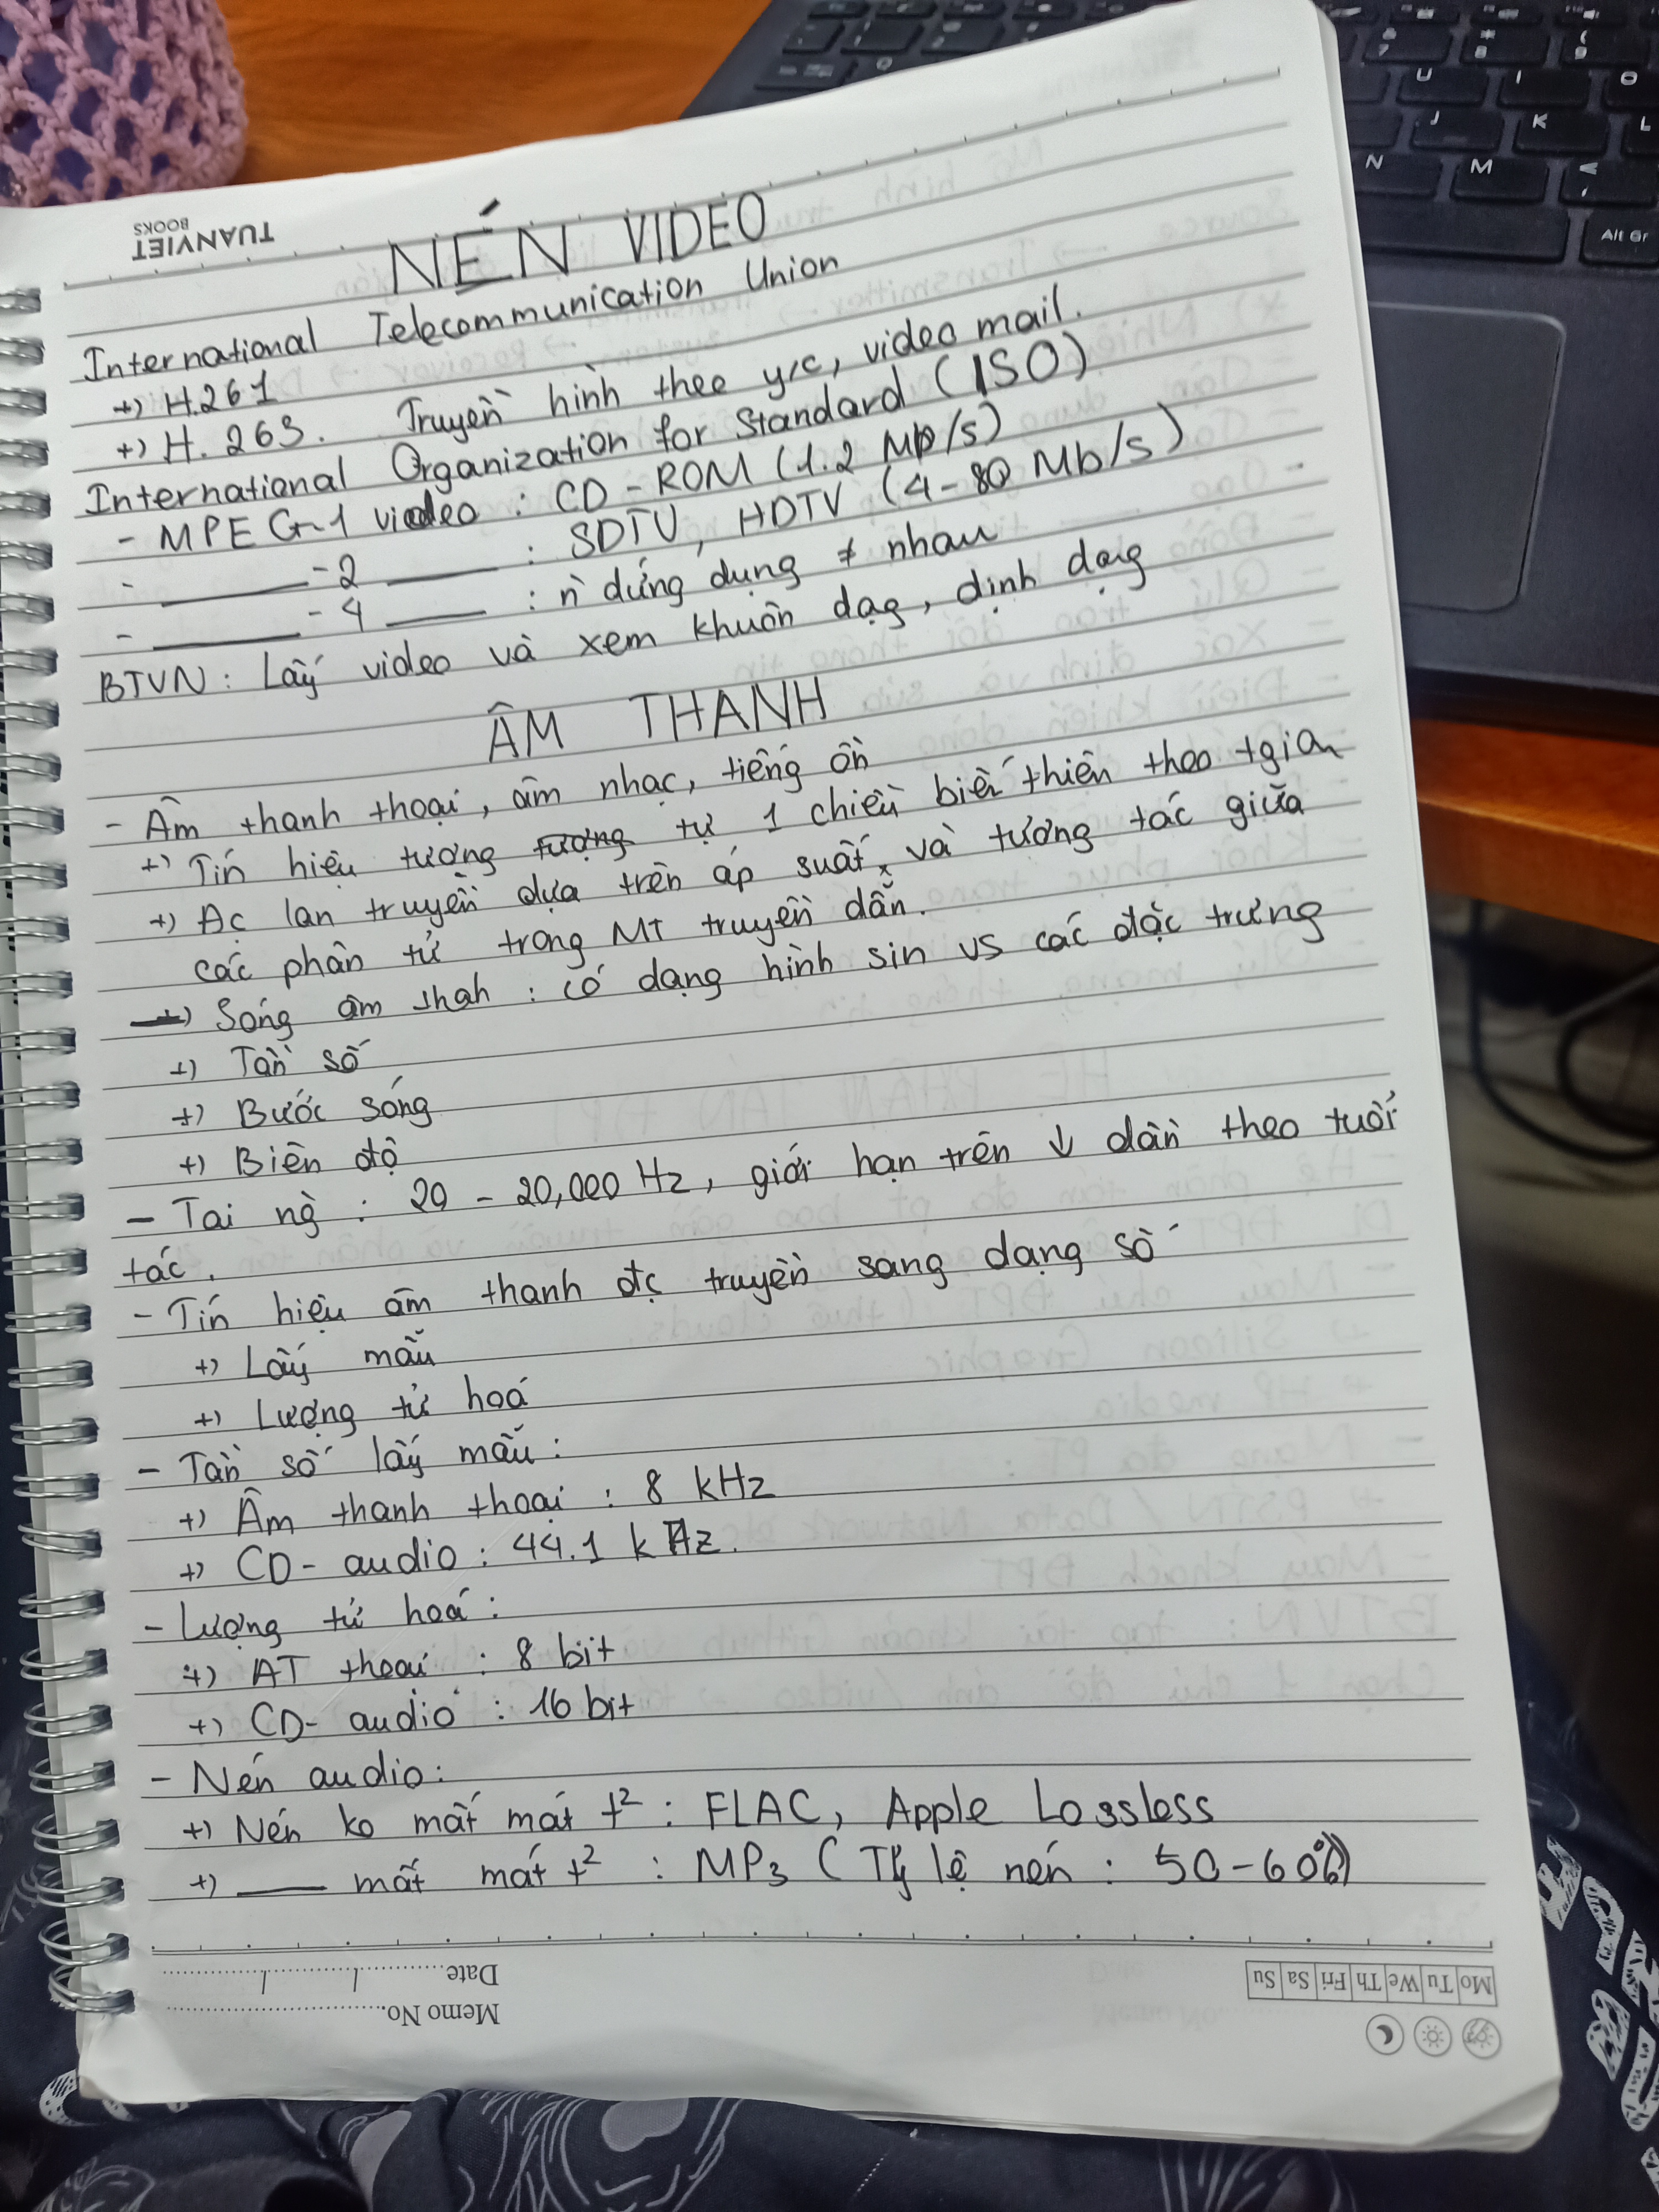 TUANVIET
BOOKS
NÉN VIDEO
International Telecommunication Union
+) H.261
+) H.263. Truyền hình theo y/c, video mail.
International Organization for Standard (ISO)
- MPEG-1 video : CD-ROM (1.2 Mb/s)
- ——— -2 ——— : SDTV, HDTV (4-80 Mb/s)
- ——— -4 ——— : ứng dụng ≠ nhau
BTVN: Lấy video và xem khuôn dạg, định dạng
ÂM THANH
- Âm thanh thoại, âm nhạc, tiếng ồn
+) Tín hiệu tương tượng tự 1 chiều biến thiên theo tgian
+) Đc lan truyền dựa trên áp suất, và tương tác giữa
các phần tử trong MT truyền dẫn.
+) Sóng âm thah : có dạng hình sin vs các đặc trưng
+) Tần số
+) Bước sóng
+) Biên độ
- Tai ng` : 20 - 20,000 Hz, giới hạn trên ↓ dần theo tuổi
tác.
- Tín hiệu âm thanh đc truyền sang dạng số
+) Lấy mẫu
+) Lượng tử hoá
- Tần số lấy mẫu :
+) Âm thanh thoại : 8 kHz
+) CD- audio : 44.1 kHz.
- Lượng tử hoá :
+) AT thoại : 8 bit
+) CD- audio : 16 bit
- Nén audio:
+) Nén ko mất mát t² : FLAC, Apple Lossless
+) ——— mất mát t² : MP3 (Tỷ lệ nén : 50-60%)
Mo Tu We Th Fri Sa Su
Memo No.
Date / /